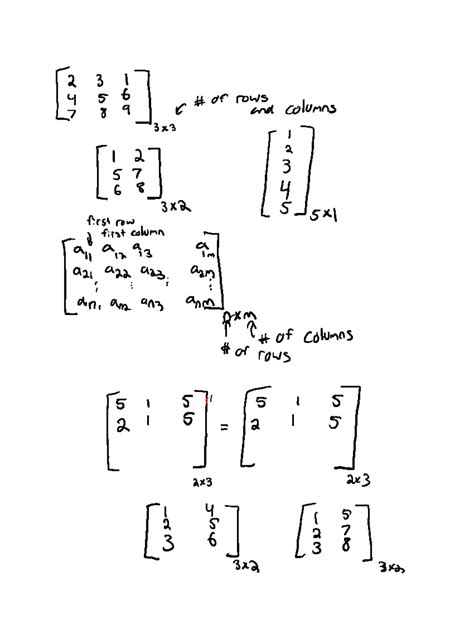 2 3 1
4 5 6
7 8 9
3×3
# of rows
and columns
1 2
5 7
6 8
3×2
1
2
3
4
5
5×1
first row
first column
a11 a12 a13 a1m
a21 a22 a23 a2m
⋮ ⋮ ⋮ ⋮
an1 an2 an3 anm
n×m
# of columns
# of
rows
5 1 5 5 1 5
2 1 5 = 2 1 5
2×3 2×3
1 4
2 5
3 6
3×2
1 5
2 7
3 8
3×2